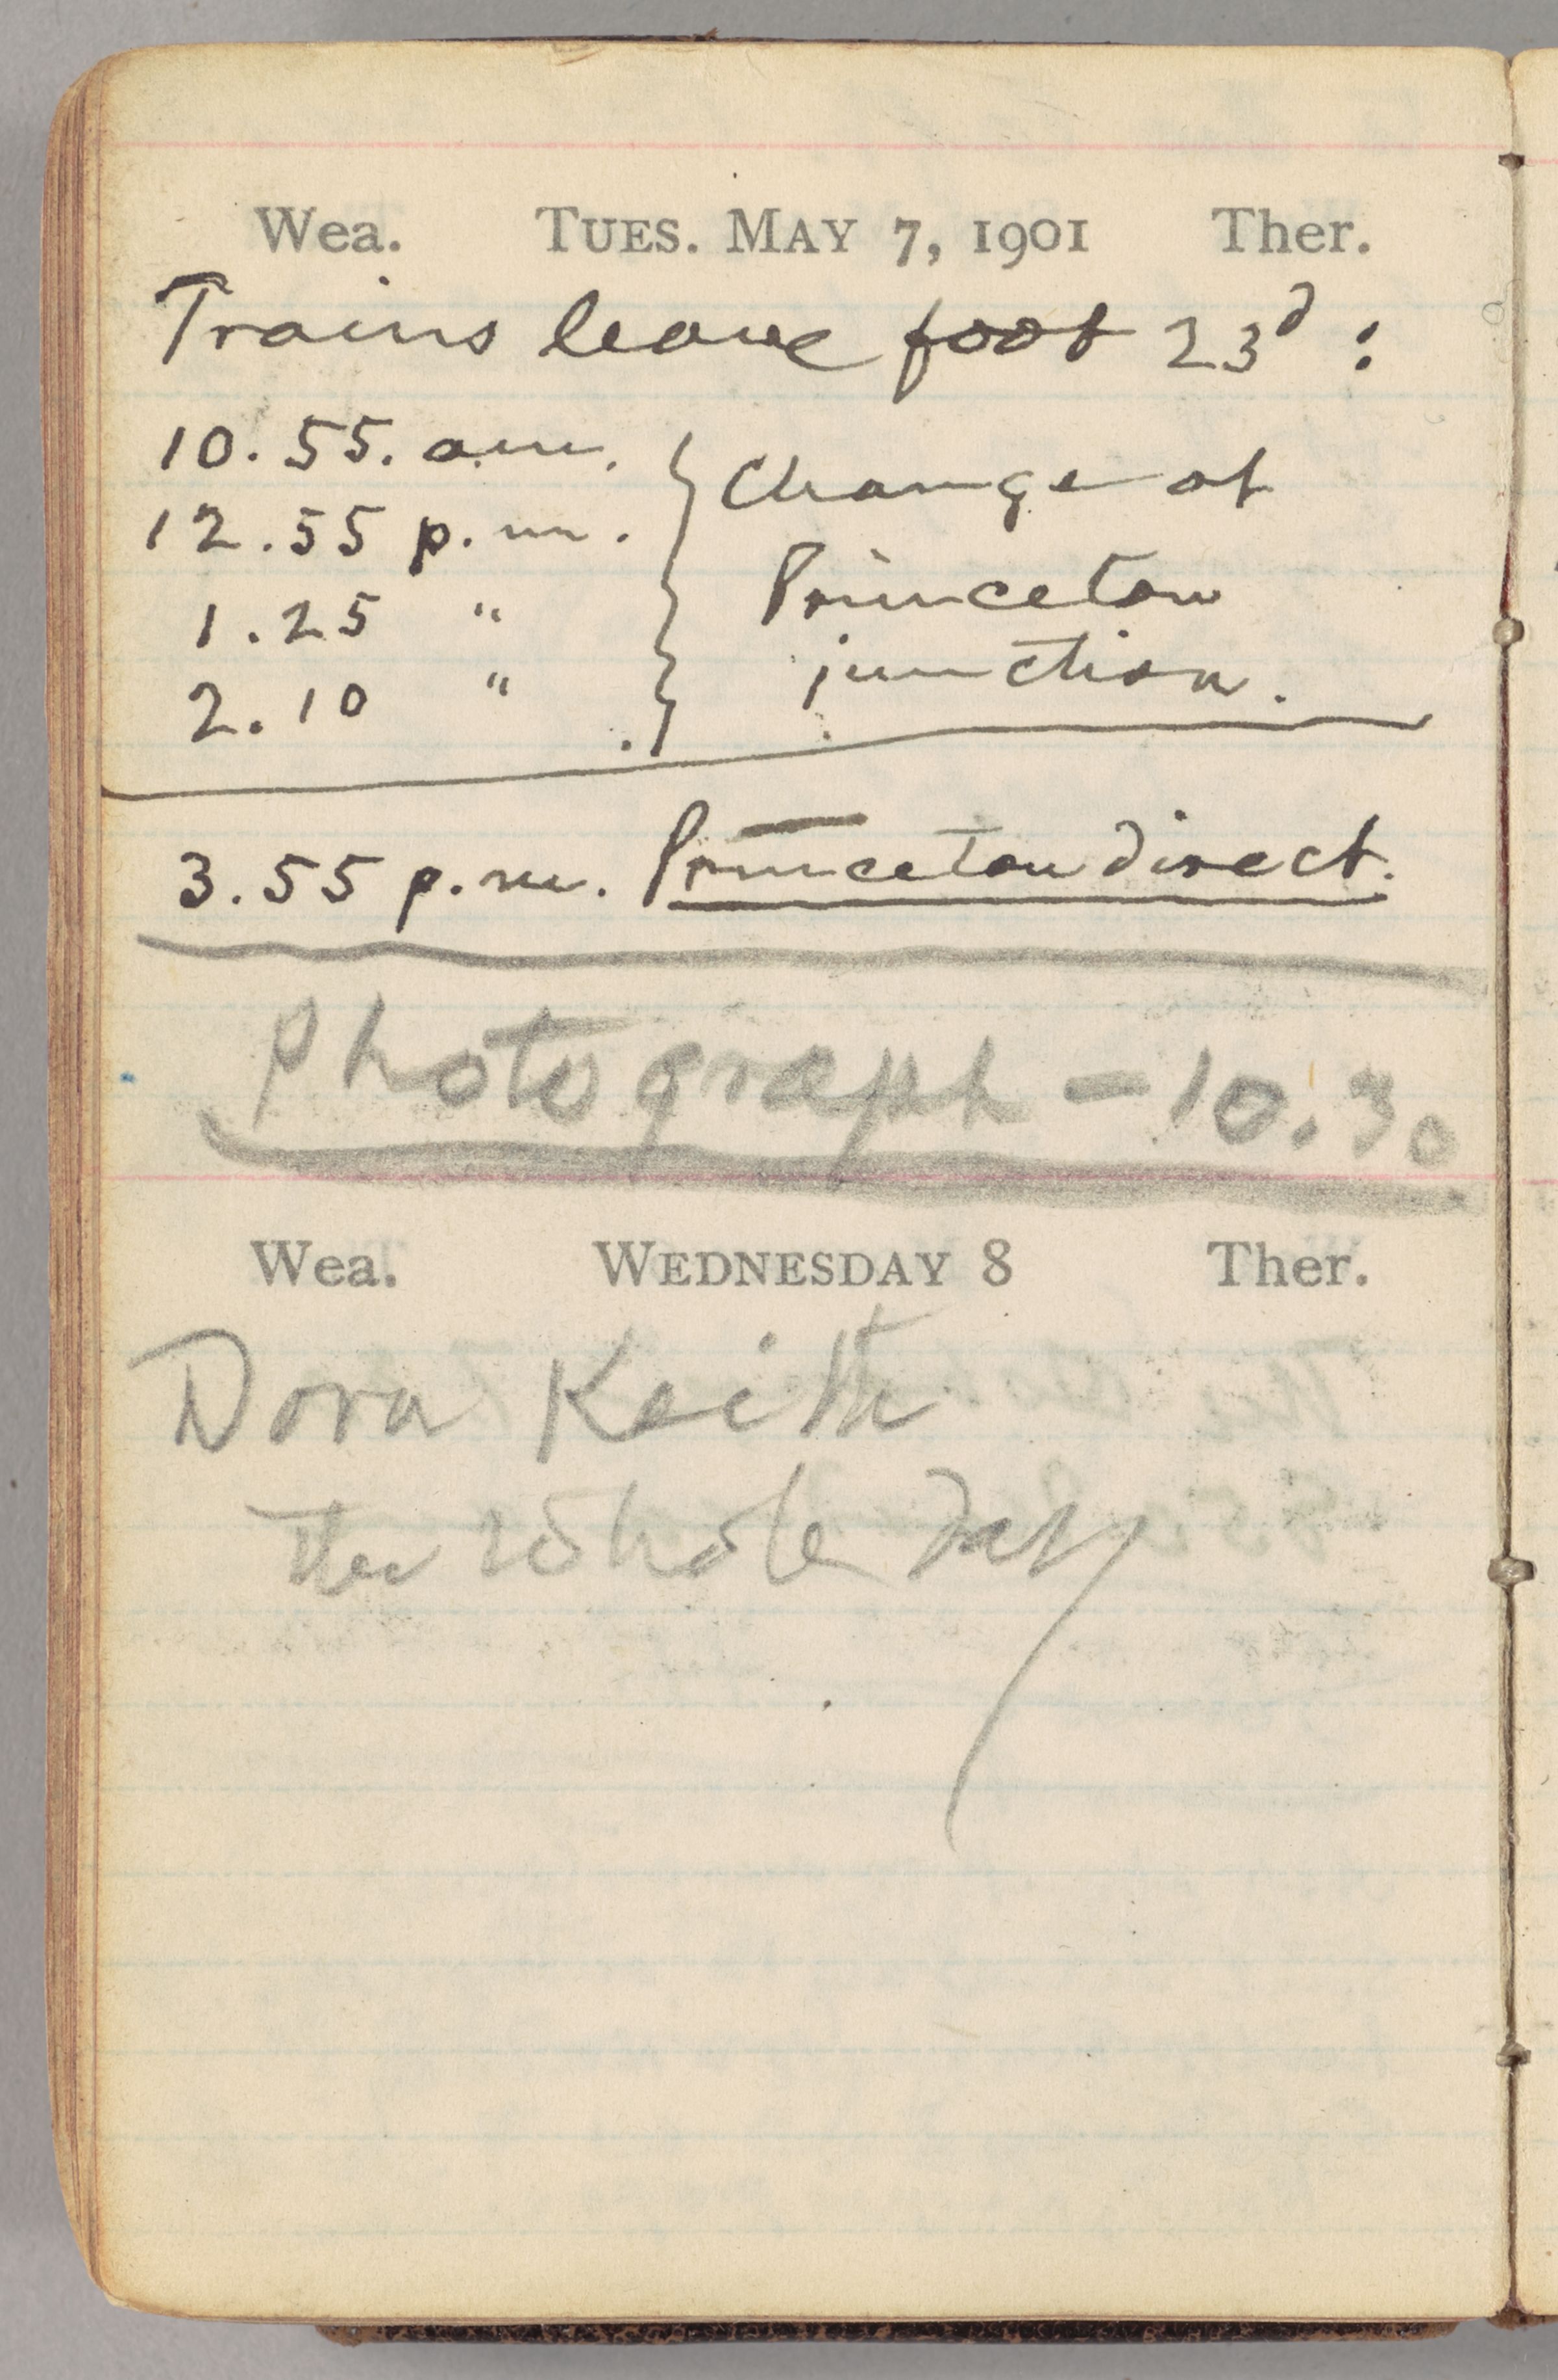 Wea. TUES. MAY 7, 1901 Ther.
Trains leave foot 23d :
10.55. a.m.
12.55 p.m. } Change at
1.25 " Princeton
2.10 " junction.
3.55 p.m. Princeton direct.
Photograph - 10.30
Wea. WEDNESDAY 8 Ther.
Dora Keith
the whole day